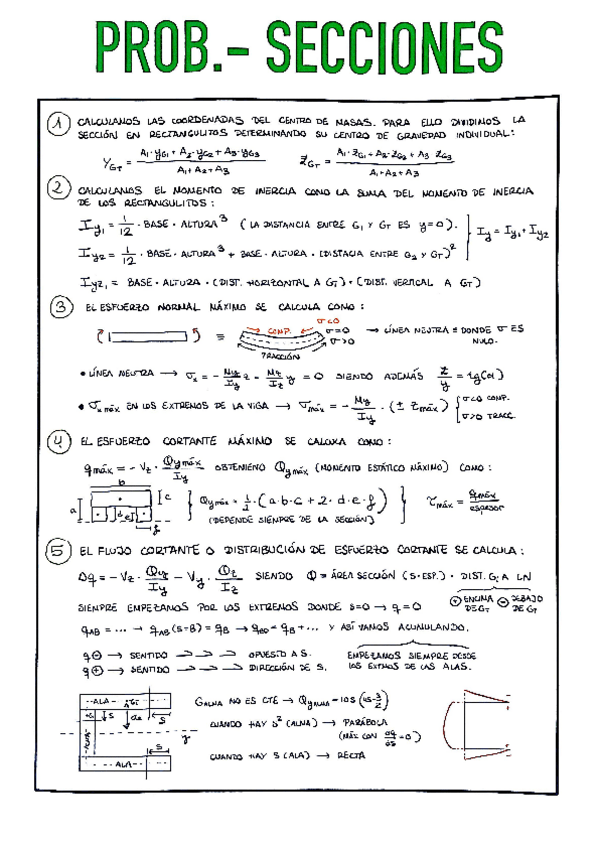 PROB.- SECCIONES
1 CALCULAMOS LAS COORDENADAS DEL CENTRO DE MASAS. PARA ELLO DIVIDIMOS LA
SECCIÓN EN RECTANGULITOS DETERMINANDO SU CENTRO DE GRAVEDAD INDIVIDUAL:
Y_GT = (A₁·y_G1 + A₂·y_G2 + A₃·y_G3) / (A₁+A₂+A₃)   Z_GT = (A₁·z_G1 + A₂·z_G2 + A₃ z_G3) / (A₁+A₂+A₃)
2 CALCULAMOS EL MOMENTO DE INERCIA COMO LA SUMA DEL MOMENTO DE INERCIA
DE LOS RECTANGULITOS:
I_y1 = 1/12 · BASE · ALTURA³ (LA DISTANCIA ENTRE G₁ Y GT ES y=0). I_y = I_y1 + I_y2
I_y2 = 1/12 · BASE · ALTURA³ + BASE · ALTURA · (DISTACIA ENTRE G₂ Y GT)²
I_yz1 = BASE · ALTURA · (DIST. HORIZONTAL A GT) · (DIST. VERTICAL A GT)
3 EL ESFUERZO NORMAL MÁXIMO SE CALCULA COMO:
σ<0
COMP. σ=0 → LÍNEA NEUTRA = DONDE σ ES
σ>0 NULO.
TRACCIÓN
• LÍNEA NEUTRA → σx = - My/Iy z - Mz/Iz y = 0 SIENDO ADEMÁS z/y = tg(α)
• σx máx EN LOS EXTREMOS DE LA VIGA → σmáx = - My/Iy · (± z máx) { σ<0 COMP.
σ>0 TRACC.
4 EL ESFUERZO CORTANTE MÁXIMO SE CALCULA COMO:
q máx = - Vz · Qy máx / Iy OBTENIENO Qy máx (MOMENTO ESTÁTICO MÁXIMO) COMO:
b
a c d e f
Qy máx = 1/2 · (a·b·c + 2·d·e·f) τ máx = q máx / espesor
(DEPENDE SIEMPRE DE LA SECCIÓN)
5 EL FLUJO CORTANTE O DISTRIBUCIÓN DE ESFUERZO CORTANTE SE CALCULA:
Δq = - Vz · Qy/Iy - Vy · Qz/Iz SIENDO Q = ÁREA SECCIÓN (S·ESP.) · DIST. G; A LN
+ ENCIMA - DEBAJO
DE GT DE GT
SIEMPRE EMPEZAMOS POR LOS EXTREMOS DONDE S=0 → q=0
q AB = ... → q AB (S=B) = q B → q BD = q B + ... Y ASÍ VAMOS ACUMULANDO.
q - → SENTIDO OPUESTO A S. EMPEZAMOS SIEMPRE DESDE
q + → SENTIDO DIRECCIÓN DE S. LOS EXTMOS DE LAS ALAS.
-- ALA --
S
y
S
-- ALA --
G ALMA NO ES CTE → Qy ALMA = 10S (15 - S/2)
CUANDO HAY S² (ALMA) → PARÁBOLA
(MÁX CON ∂q/∂s = 0)
CUANDO HAY S (ALA) → RECTA